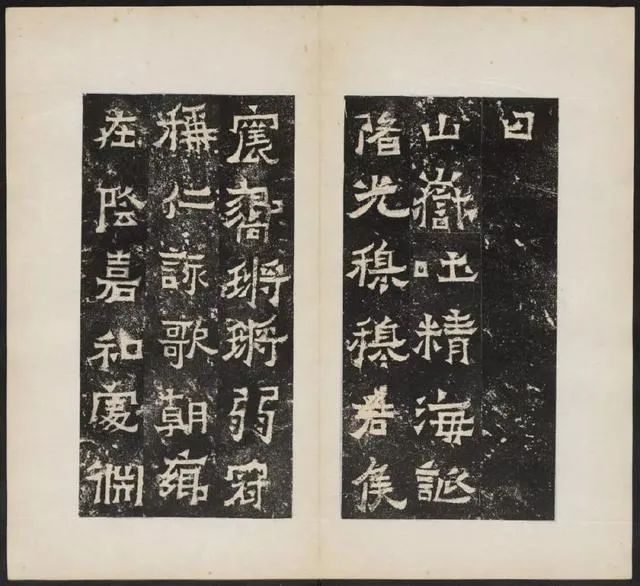 曰
山嶽吐精海誕
陼光穆穆君侯
震響鏘鏘弱冠
稱仁詠歌朝鄉
在陰嘉和處淵